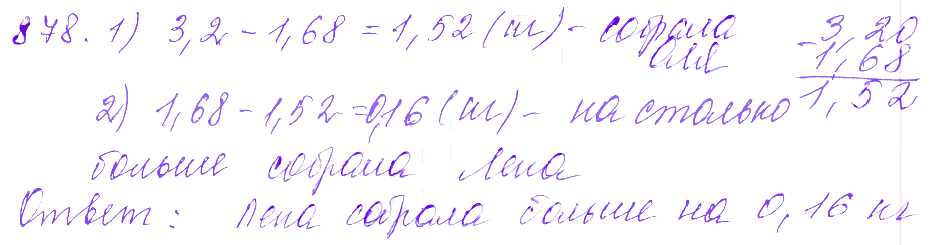 878. 1) 3,2 - 1,68 = 1,52 (кг) - собрала
Оля
- 3,20
1,68
1,52
2) 1,68 - 1,52 = 0,16 (кг) - на столько
больше собрала Лена
Ответ: Лена собрала больше на 0,16 кг